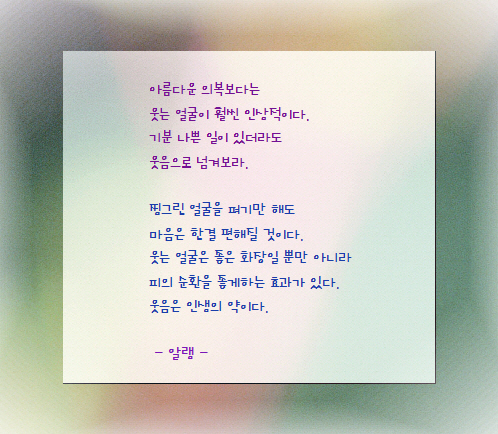 아름다운 의복보다는
웃는 얼굴이 훨씬 인상적이다.
기분 나쁜 일이 있더라도
웃음으로 넘겨보라.
찡그린 얼굴을 펴기만 해도
마음은 한결 편해질 것이다.
웃는 얼굴은 좋은 화장일 뿐만 아니라
피의 순환을 좋게하는 효과가 있다.
웃음은 인생의 약이다.
- 알랭 -